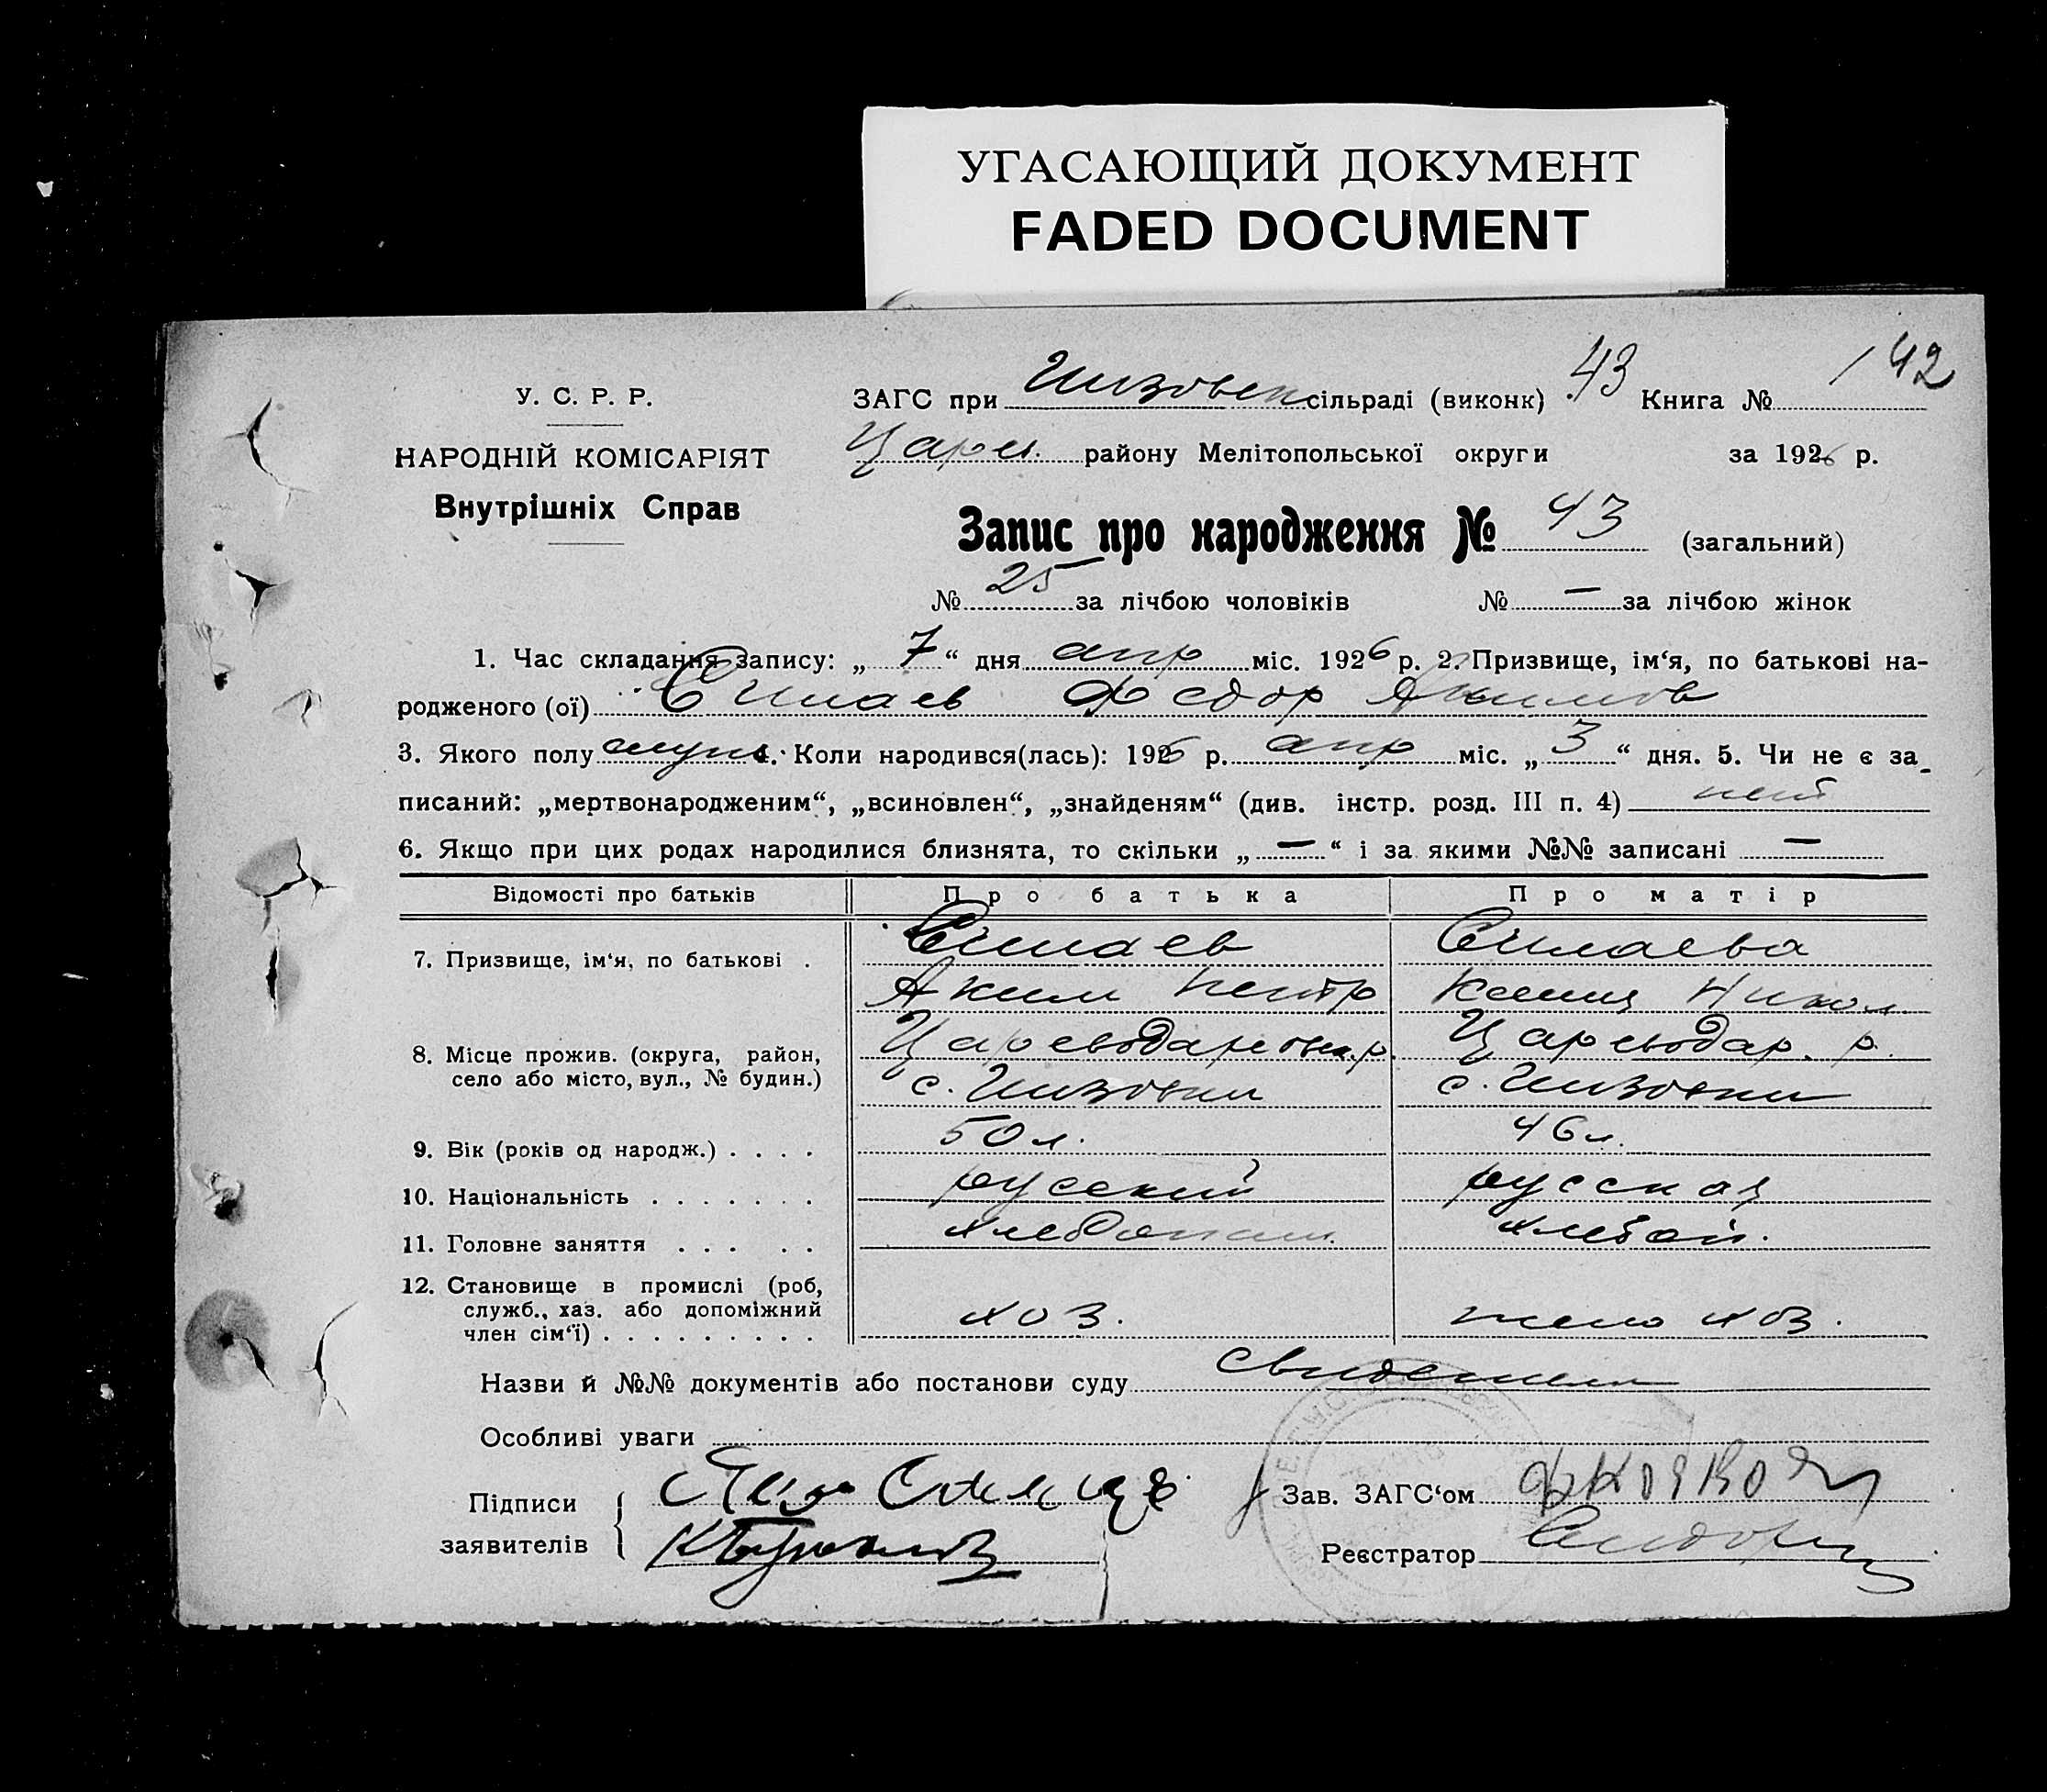 УГАСАЮЩИЙ ДОКУМЕНТ
FADED DOCUMENT
142
У. С. Р. Р.
ЗАГС при Низовск сільраді (виконк) 43 Книга №
НАРОДНІЙ КОМІСАРІЯТ
Царев. району Мелітопольської округи за 1926 р.
Внутрішніх Справ
Запис про народження № 43 (загальний)
№ 25 за лічбою чоловіків № — за лічбою жінок
1. Час складання запису: „ 7 “ дня апр міс. 1926 р. 2. Призвище, ім‘я, по батькові на-
родженого (ої) Силаев Федор Акимов
3. Якого полу муж 4. Коли народився(лась): 1926 р. апр міс. „ 3 “ дня. 5. Чи не є за-
писаний: „мертвонародженим“, „всиновлен“, „знайденям“ (див. інстр. розд. III п. 4) нет
6. Якщо при цих родах народилися близнята, то скільки „ — “ і за якими №№ записані —
Відомості про батьків Про батька Про матір
7. Призвище, ім‘я, по батькові . Силаев Силаева
Аким Петр Ксения Никол.
8. Місце прожив. (округа, район, село або місто, вул., № будин.) Цареводаровск. р. Цареводар. р.
с. Низовки с. Низовки
9. Вік (років од народж.) . . . . 50 л. 46 л.
10. Національність . . . . . . . русский русская
11. Головне заняття . . . . . хлебопаш. хлебоп.
12. Становище в промислі (роб, служб., хаз. або допоміжний член сім‘ї) . . . . . . . . . хоз. жена хоз.
Назви й №№ документів або постанови суду свидетели
Особливі уваги
Підписи заявителів
Зав. ЗАГС‘ом
Реєстратор